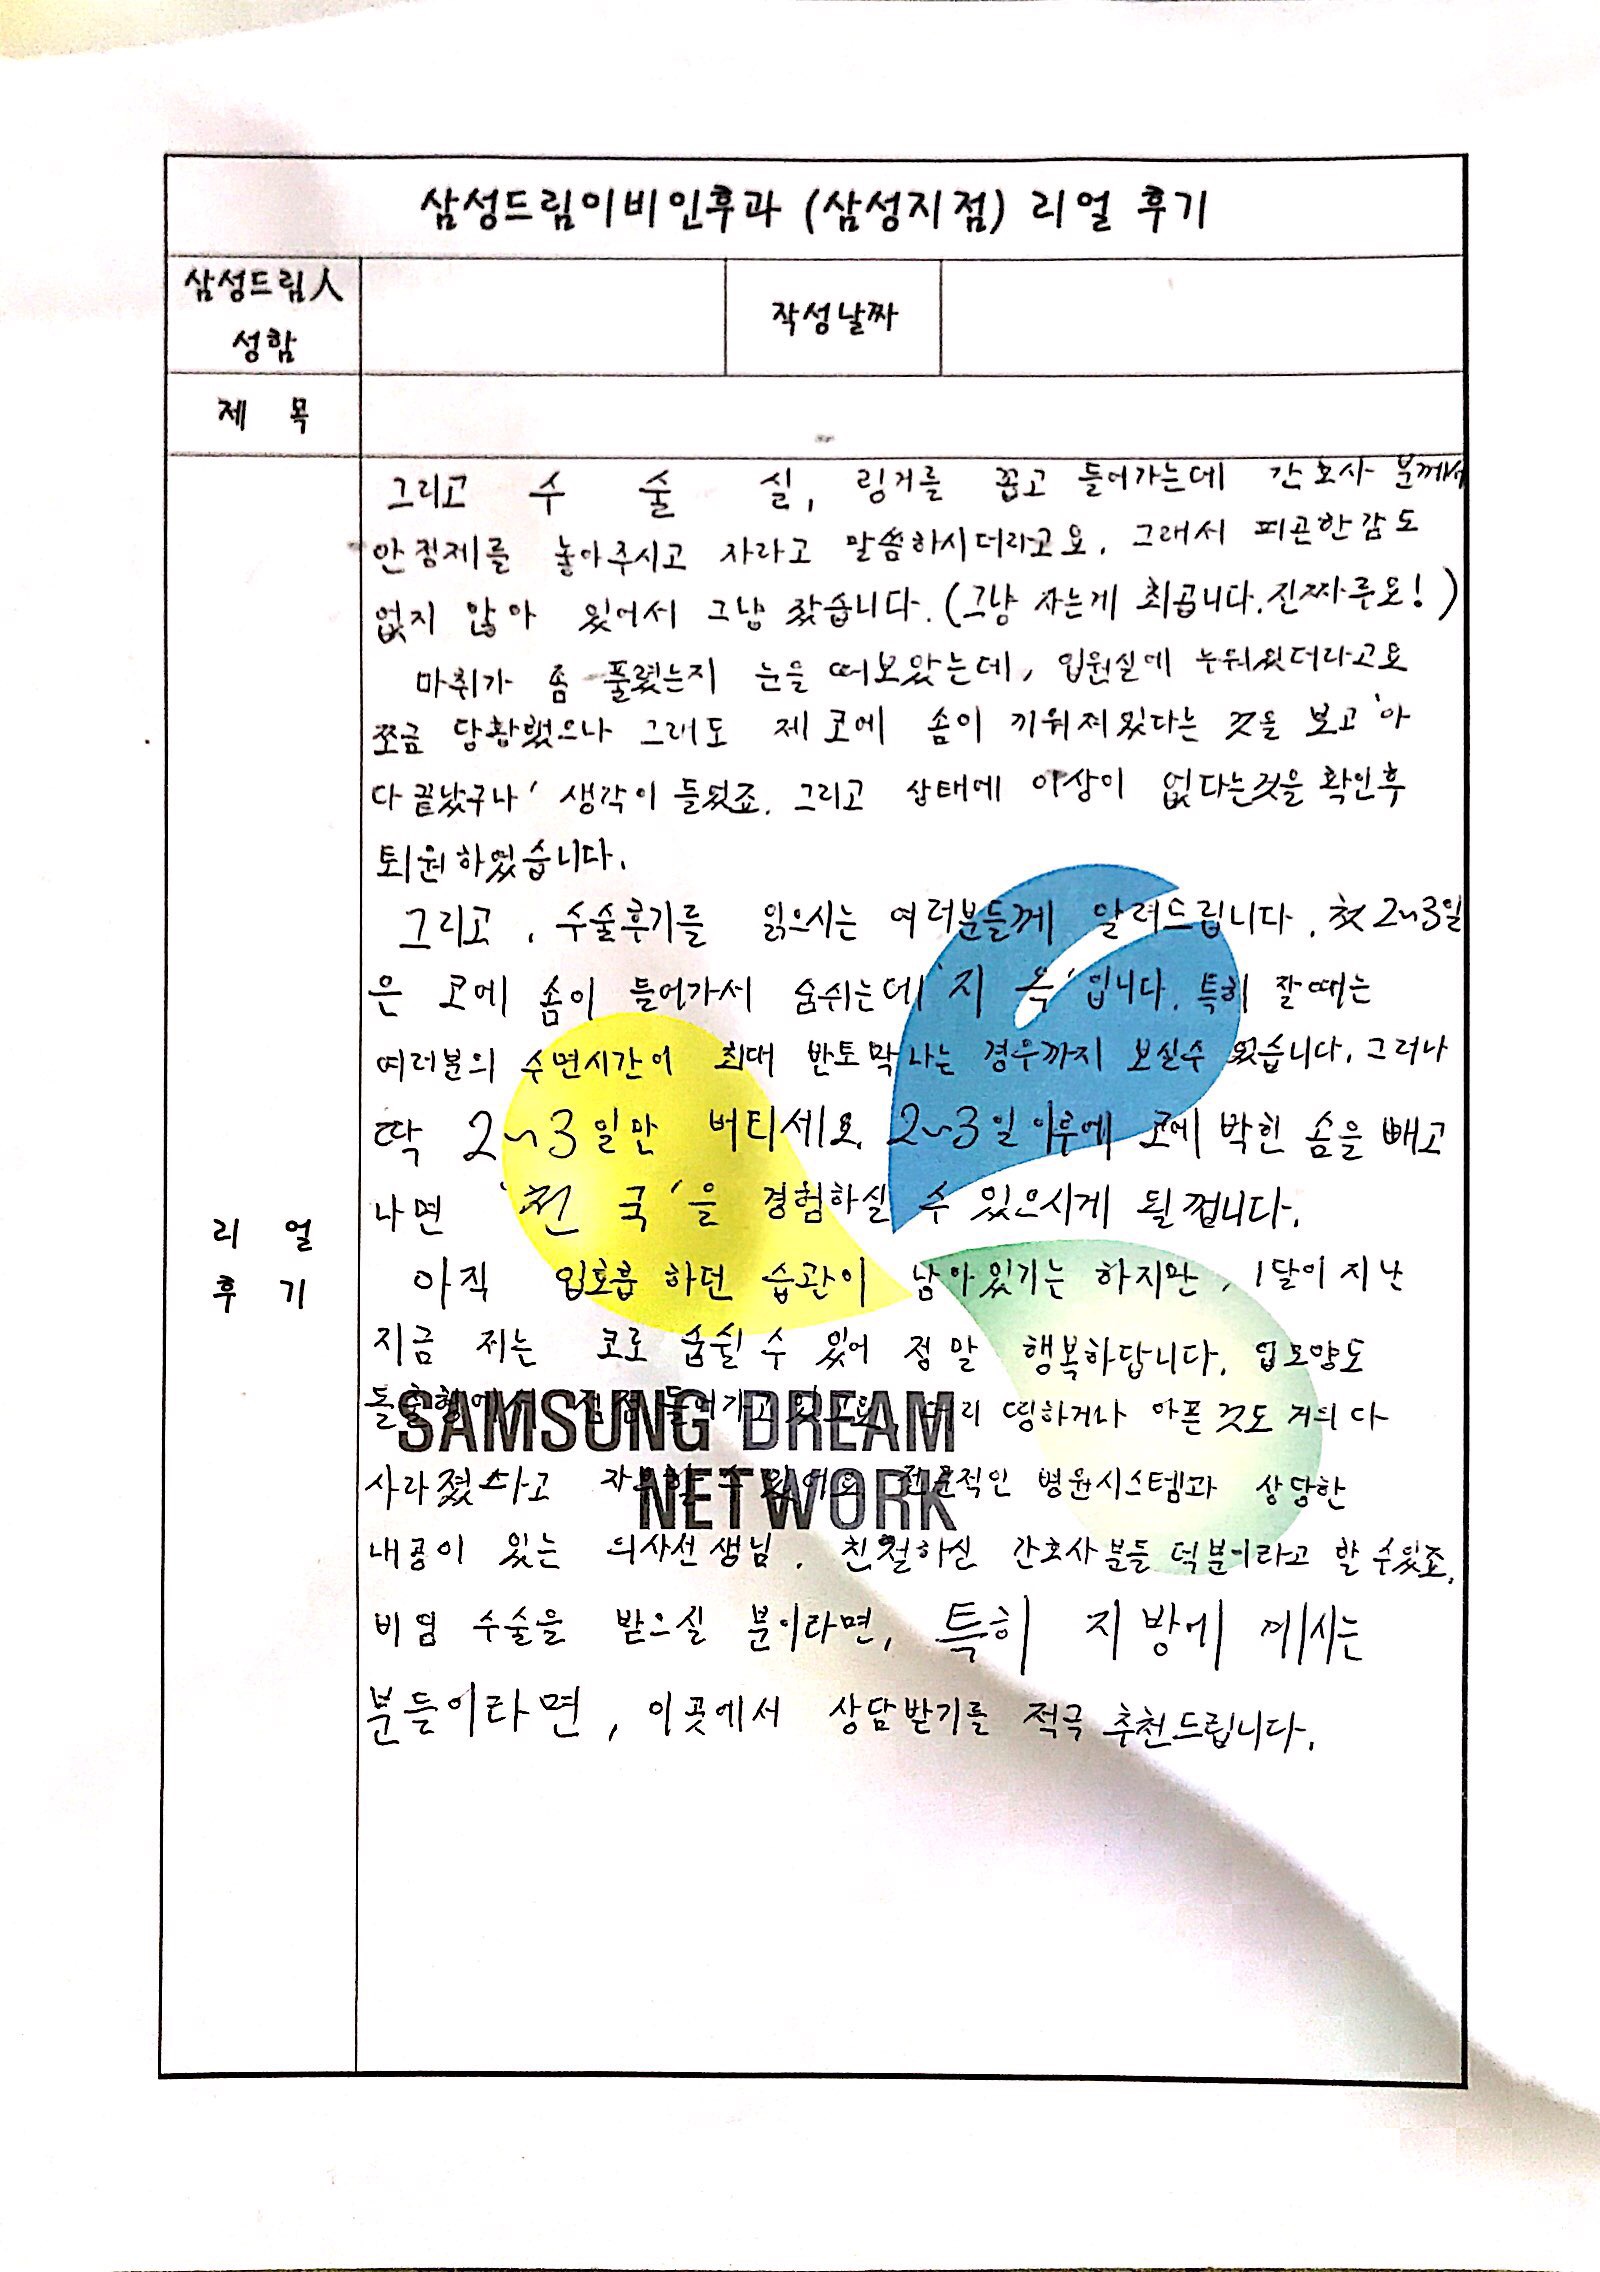 삼성드림이비인후과 (삼성지점) 리얼 후기
삼성드림人
성함
작성날짜
제 목
리 얼
후 기
그리고 수 술 실, 링거를 꼽고 들어가는데 간호사 분께서
안정제를 놓아주시고 자라고 말씀하시더라고요. 그래서 피곤한감도
없지 않아 있어서 그냥 잤습니다. (그냥 자는게 최곱니다. 진짜루요!)
마취가 좀 풀렸는지 눈을 떠보았는데, 입원실에 누워있더라고요
쪼금 당황했으나 그래도 제 코에 솜이 끼워져있다는 것을 보고 '아
다 끝났구나' 생각이 들었죠. 그리고 상태에 이상이 없다는것을 확인후
퇴원하였습니다.
그리고, 수술후기를 읽으시는 여러분들께 알려드립니다. 첫 2~3일
은 코에 솜이 들어가서 숨쉬는데 '지 옥' 입니다. 특히 잘때는
여러분의 수면시간이 최대 반토막나는 경우까지 보실수 있습니다. 그러나
딱 2~3일만 버티세요. 2~3일 이후에 코에 박힌 솜을 빼고
나면 '천 국'을 경험하실 수 있으시게 될껍니다.
아직 입호흡 하던 습관이 남아있기는 하지만, 1달이 지난
지금 저는 코로 숨쉴 수 있어 정말 행복하답니다. 입모양도
돌출형에서 점점 들어가고 있고요, 머리 띵하거나 아픈것도 거의 다
사라졌다고 자부할 수 있어요. 전문적인 병원시스템과 상당한
내공이 있는 의사선생님, 친절하신 간호사분들 덕분이라고 할 수있죠.
비염 수술을 받으실 분이라면, 특히 지방에 계시는
분들이라면, 이곳에서 상담받기를 적극 추천드립니다.
SAMSUNG DREAM
NETWORK